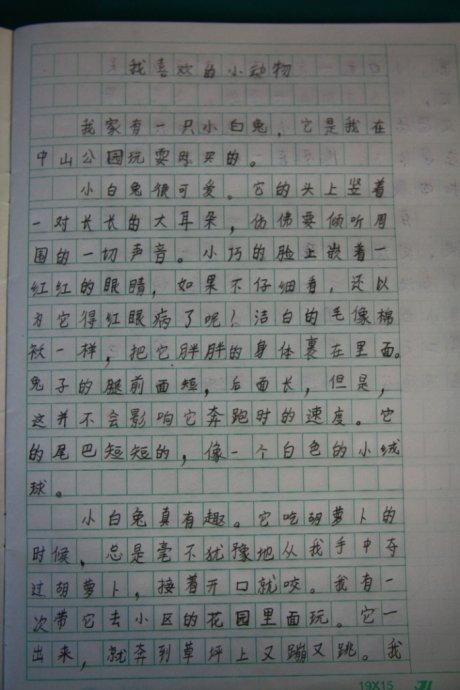 我喜欢的小动物
我家有一只小白兔，它是我在
中山公园玩耍时买的。
小白兔很可爱。它的头上竖着
一对长长的大耳朵，仿佛要倾听周
围的一切声音。小巧的脸上嵌着一
红红的眼睛，如果不仔细看，还以
为它得红眼病了呢！洁白的毛像棉
袄一样，把它胖胖的身体裹在里面。
兔子的腿前面短，后面长，但是，
这并不会影响它奔跑时的速度。它
的尾巴短短的，像一个白色的小绒
球。
小白兔真有趣。它吃胡萝卜的
时候，总是毫不犹豫地从我手中夺
过胡萝卜，接着开口就咬。我有一
次带它去小区的花园里面玩。它一
出来，就奔到草坪上又蹦又跳。我
19X15